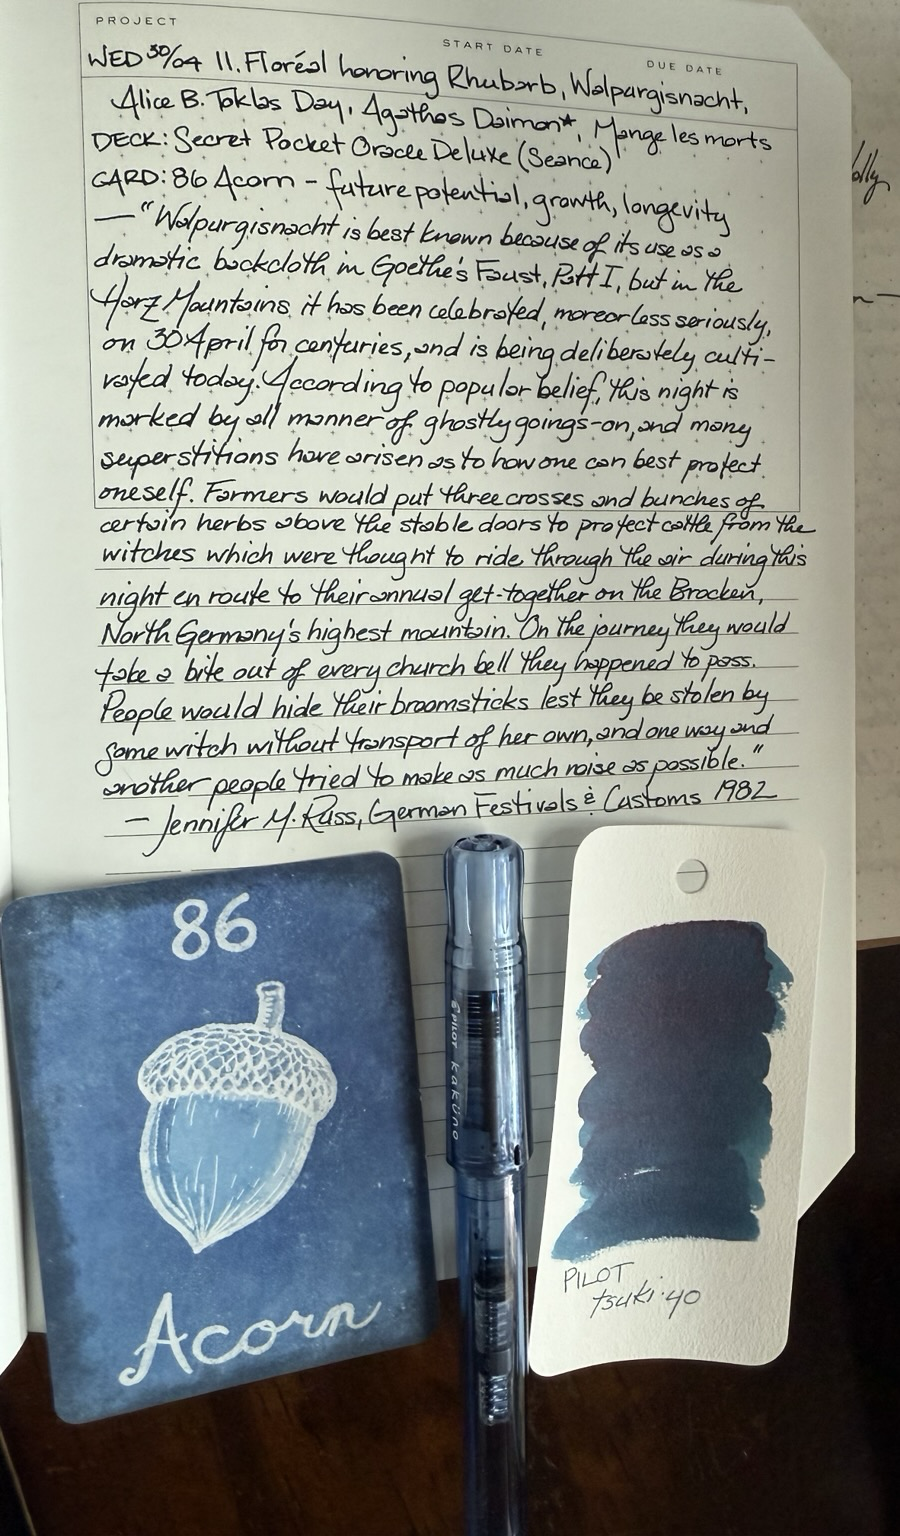 PROJECT
START DATE
DUE DATE
WED 30/04 11. Floréal honoring Rhubarb, Walpurgisnacht,
Alice B. Toklas Day, Agathos Daimon*, Mange les morts
DECK: Secret Pocket Oracle Deluxe (Seance)
CARD: 86 Acorn – future potential, growth, longevity
— "Walpurgisnacht is best known because of its use as a
dramatic backcloth in Goethe's Faust, Part I, but in the
Harz Mountains it has been celebrated, more or less seriously,
on 30 April for centuries, and is being deliberately culti-
vated today. According to popular belief, this night is
marked by all manner of ghostly goings-on, and many
superstitions have arisen as to how one can best protect
oneself. Farmers would put three crosses and bunches of
certain herbs above the stable doors to protect cattle from the
witches which were thought to ride through the air during this
night en route to their annual get-together on the Brocken,
North Germany's highest mountain. On the journey they would
take a bite out of every church bell they happened to pass.
People would hide their broomsticks lest they be stolen by
some witch without transport of her own, and one way and
another people tried to make as much noise as possible."
– Jennifer M. Russ, German Festivals & Customs 1982
86
Acorn
PILOT kaküno
PILOT
tsuki-yo